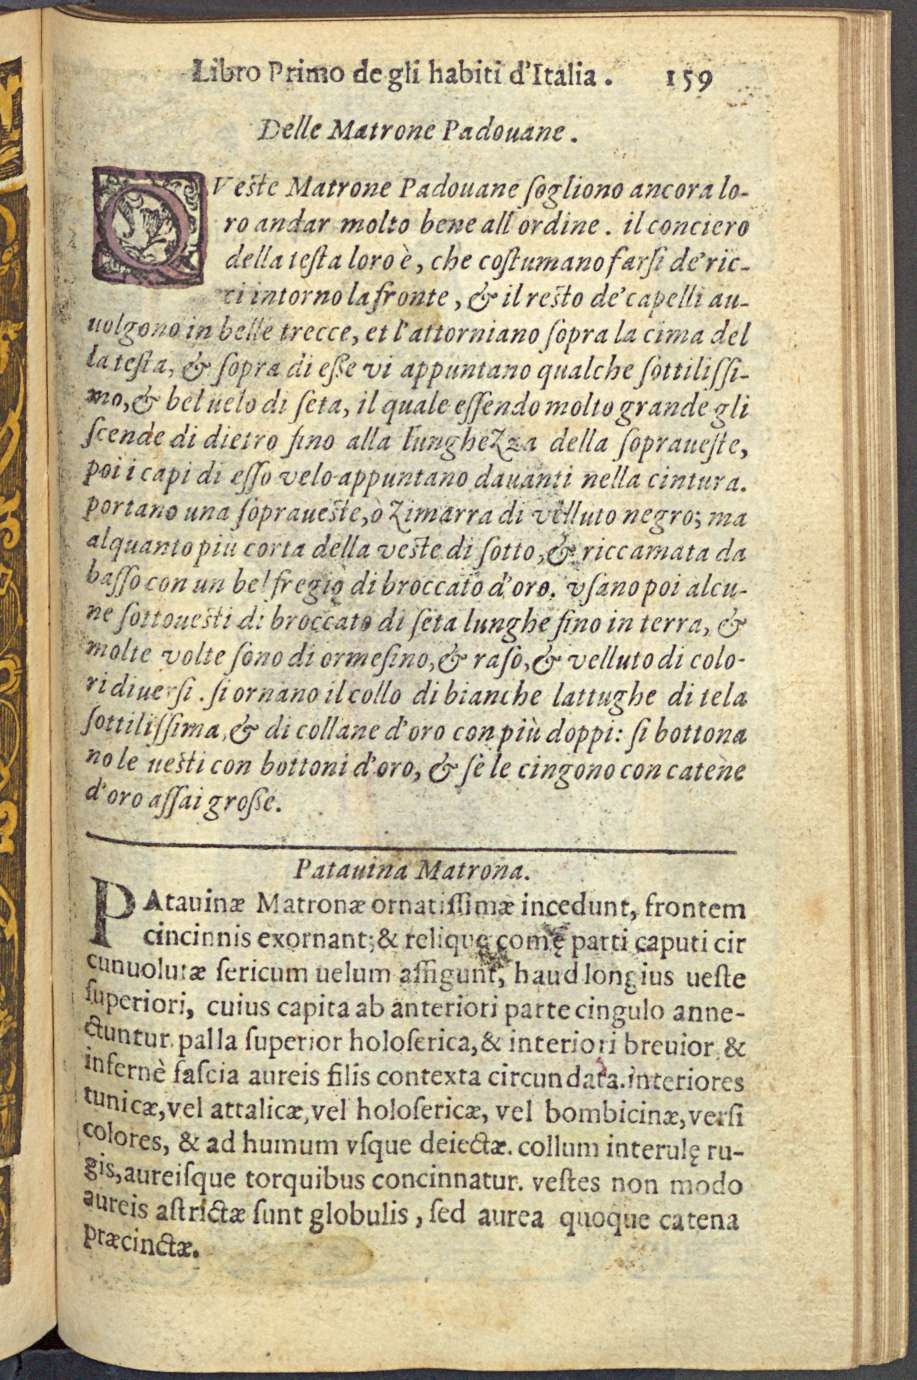 Libro Primo de gli habiti d'Italia. 159
Delle Matrone Padouane.
QVeſte Matrone Padouane ſogliono ancora lo-
ro andar molto bene all'ordine. il conciero
della teſta loro è, che coſtumano farſi de'ric-
ci intorno la fronte, & il reſto de'capelli au-
uolgono in belle trecce, et l'attorniano ſopra la cima del
la teſta, & ſopra di eſſe vi appuntano qualche ſottiliſſi-
mo, & bel uelo di ſeta, il quale eſſendo molto grande gli
ſcende di dietro fino alla lunghezza della ſopraueſte,
poi i capi di eſſo velo appuntano dauanti nella cintura.
portano una ſopraueſte, ò zimarra di velluto negro; ma
alquanto più corta della veſte di ſotto, & riccamata da
baſſo con un bel fregio di broccato d'oro. vſano poi alcu-
ne ſottoueſti di broccato di ſeta lunghe fino in terra, &
molte volte ſono di ormeſino, & raſo, & velluto di colo-
ri diuerſi. ſi ornano il collo di bianche lattughe di tela
ſottiliſſima, & di collane d'oro con più doppi: ſi bottona
no le ueſti con bottoni d'oro, & ſe le cingono con catene
d'oro aſſai groſſe.
Patauina Matrona.
PAtauinæ Matronæ ornatiſſimæ incedunt, frontem
cincinnis exornant; & reliquę comę parti capiti cir
cunuolutæ ſericum uelum affigunt, haud longius ueſte
ſuperiori, cuius capita ab anteriori parte cingulo anne-
ctuntur. palla ſuperior holoſerica, & interiori breuior, &
infernè faſcia aureis filis contexta circundata. interiores
tunicæ, vel attalicæ, vel holoſericæ, vel bombicinæ, verſi
colores, & ad humum vſque deiectæ. collum interulę ru-
gis, aureiſque torquibus concinnatur. veſtes non modo
aureis aſtrictæ ſunt globulis, ſed aurea quoque catena
præcinctæ.